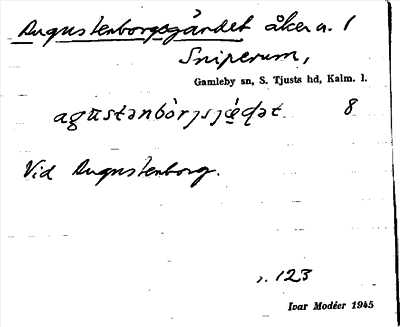 Augustenborgsgärdet åker n. 1
Sniperum,
Gamleby sn, S. Tjusts hd, Kalm. l.
8
Vid Augustenborg.
s. 123
Ivar Modéer 1945